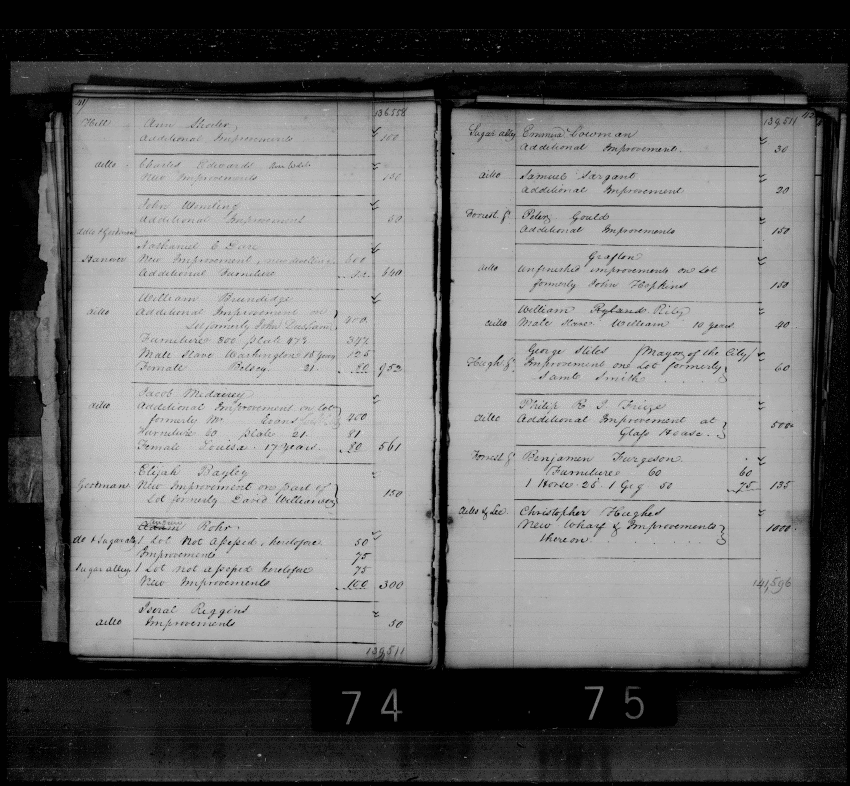 136558
Hill Ann Shorter
Additional Improvements 100
ditto Charles Edwards
New Improvements 150
John
Additional Improvement 50
Nathaniel C
Hanover New Improvement, new dwelling 500
Additional Furniture 640
William Brundidge
ditto Additional Improvement on
Lot formerly John 400
Furniture 300 plate 47 347
Male Slave Washington 18 years 125
Female Betsey 21 80 952
Jacob
ditto Additional Improvement on lot
formerly Mr. Evans 400
Furniture 60 plate 21 81
Female Louisa 17 years 80 561
Elijah Bayley
Gootman New Improvement on part of
Lot formerly David Williamson 150
Rohr
do & Sugar aly 1 Lot not assessed heretofore 50
Improvements 75
Sugar alley 1 Lot not assessed heretofore 75
New Improvements 100 300
Iseral Riggins
ditto Improvements 50
139511
139,511
Sugar alley Emmea Cowman
Additional Improvement 30
ditto Samuel Sargant
Additional Improvement 20
Forrest St Peter Gould
Additional Improvements 150
Grafton
ditto Unfinished improvements on Lot
formerly John Hopkins 150
William Ryland Rily
ditto Male Slave William 10 years 40
George Stiles (Mayor of the City)
Hugh St Improvement on Lot formerly
Saml Smith 60
Philip R I Frige
ditto Additional Improvement at
Glass House 500
Forrest St Benjamen Furgeson
Furniture 60 60
1 Horse 25 1 Gig 50 75 135
ditto & Lee Christopher Hughes
New Wharf & Improvements
thereon 1000
141,596
74
75